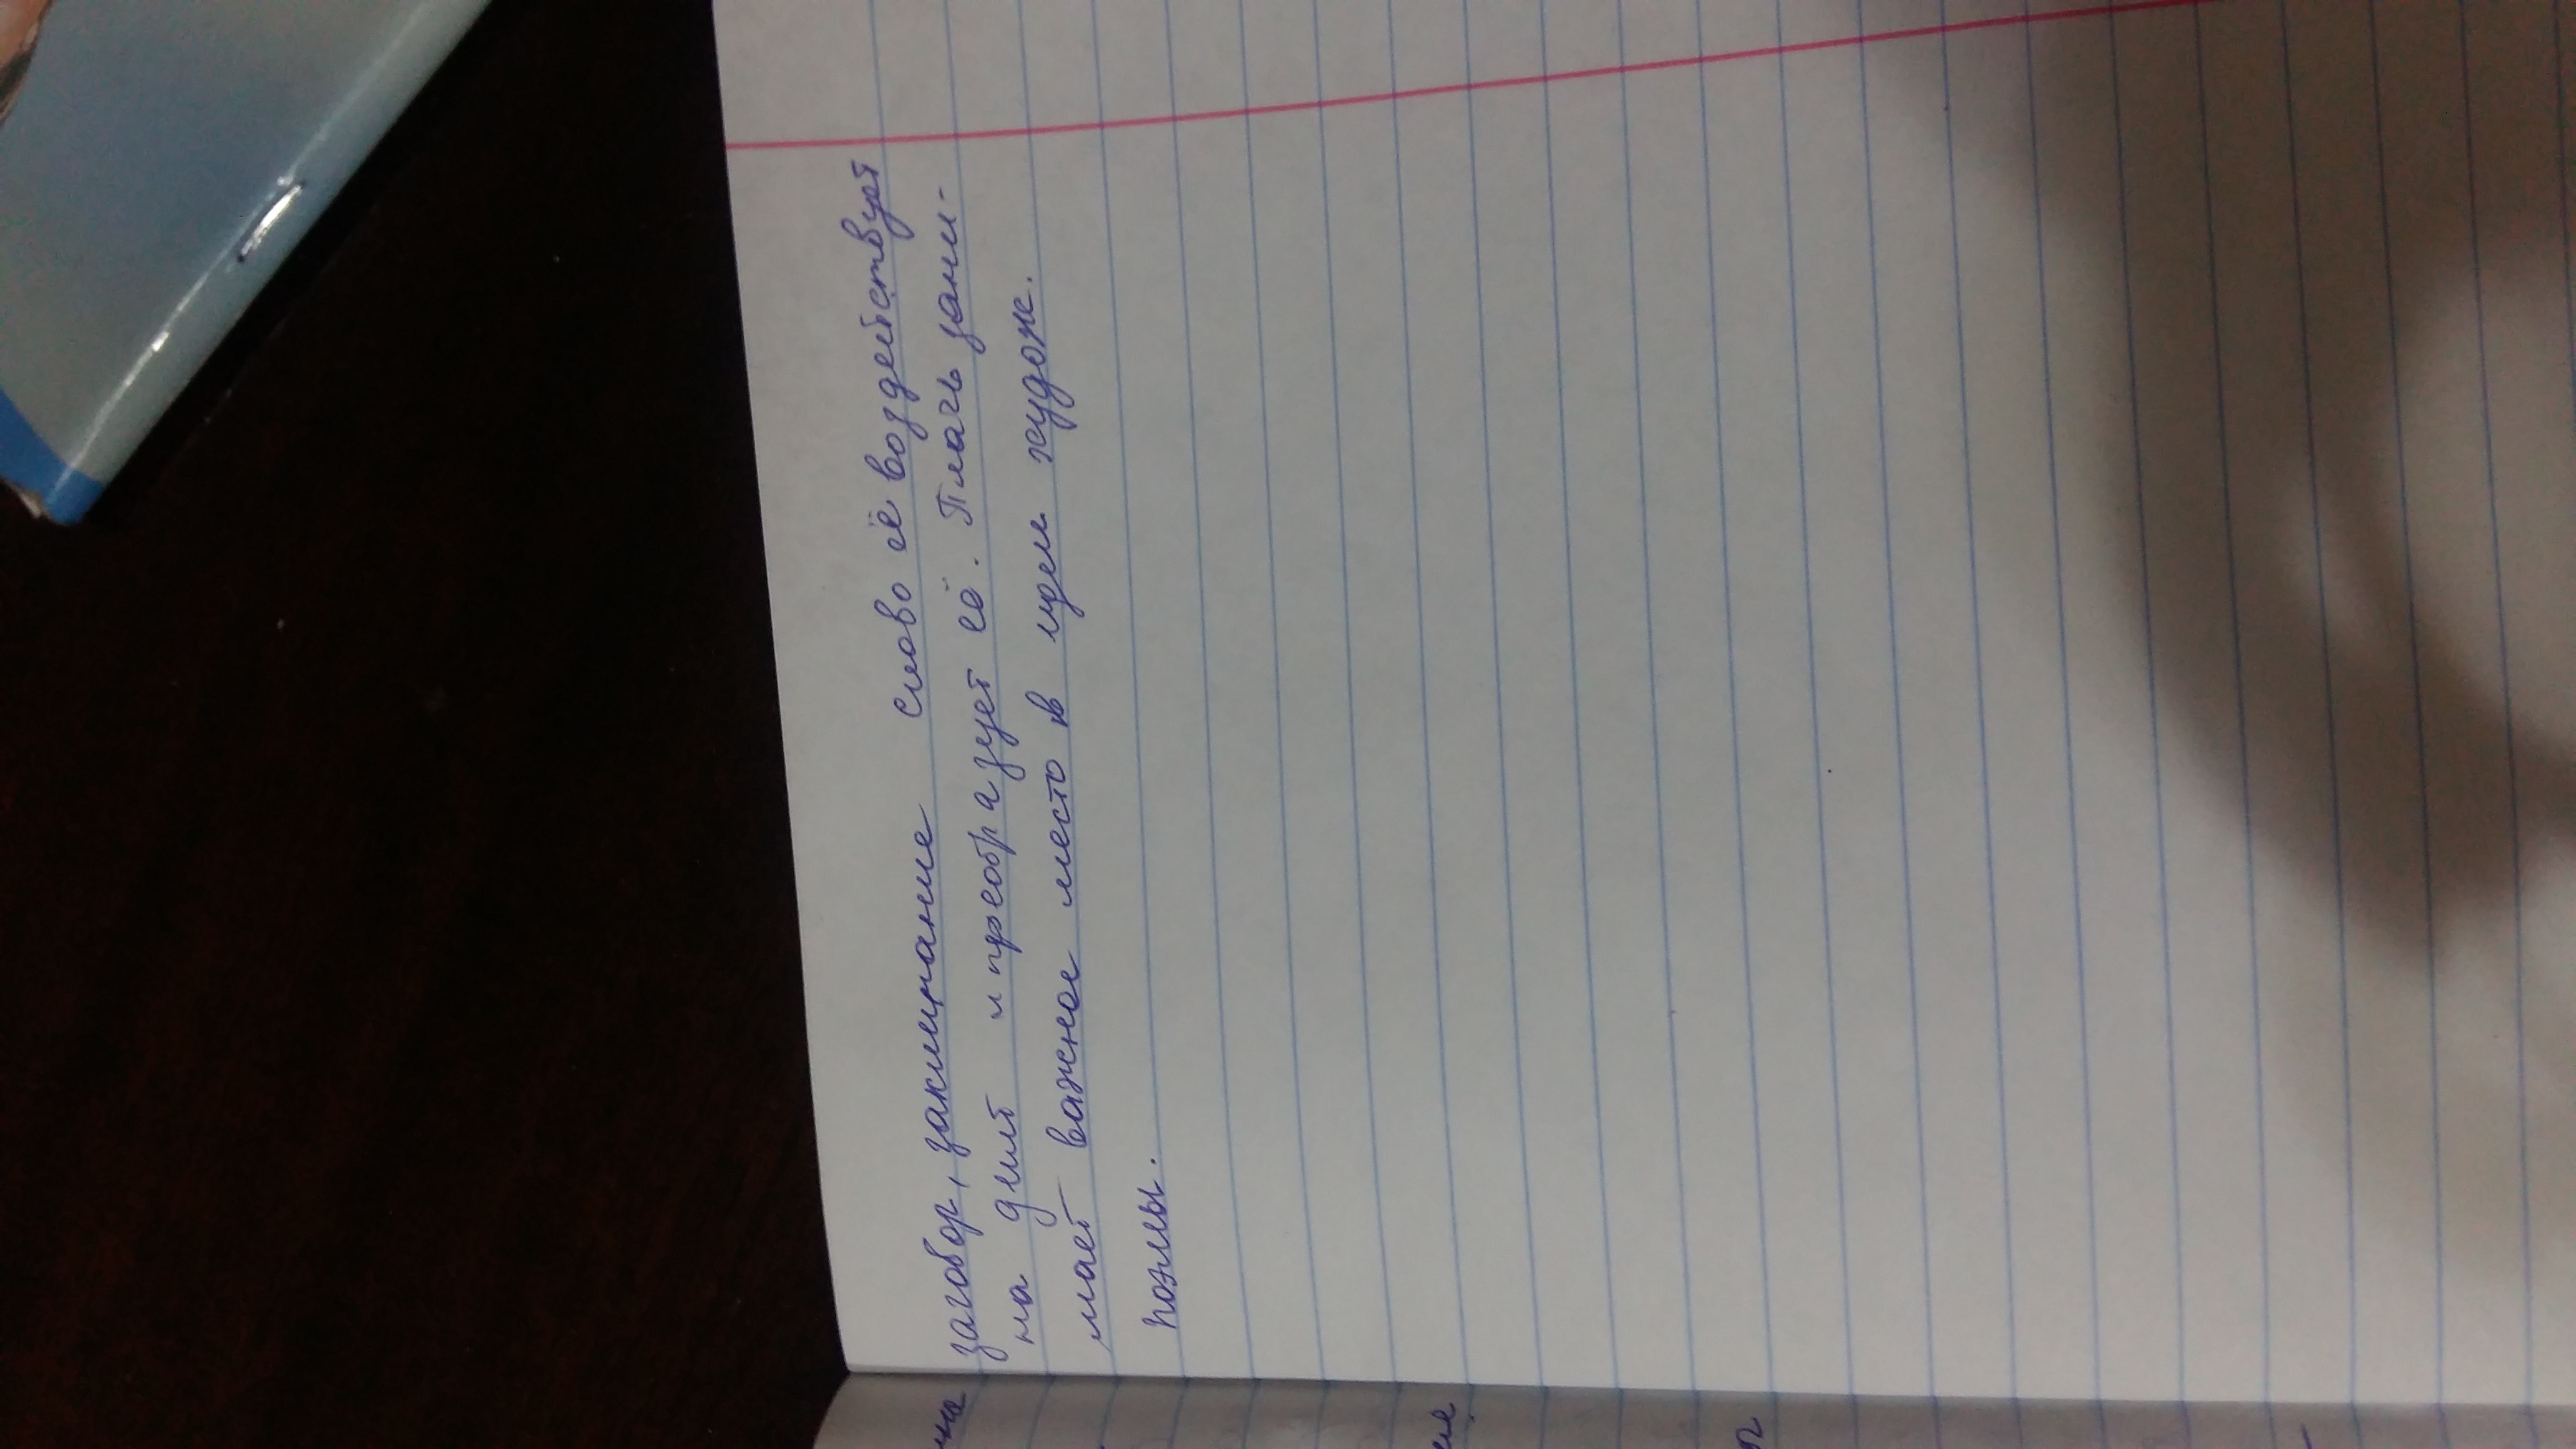 заговор, заклинание слово её воздействует
на дейст и преобразует её. Плачь зани-
мает важное место в идеи худож.
поэмы.